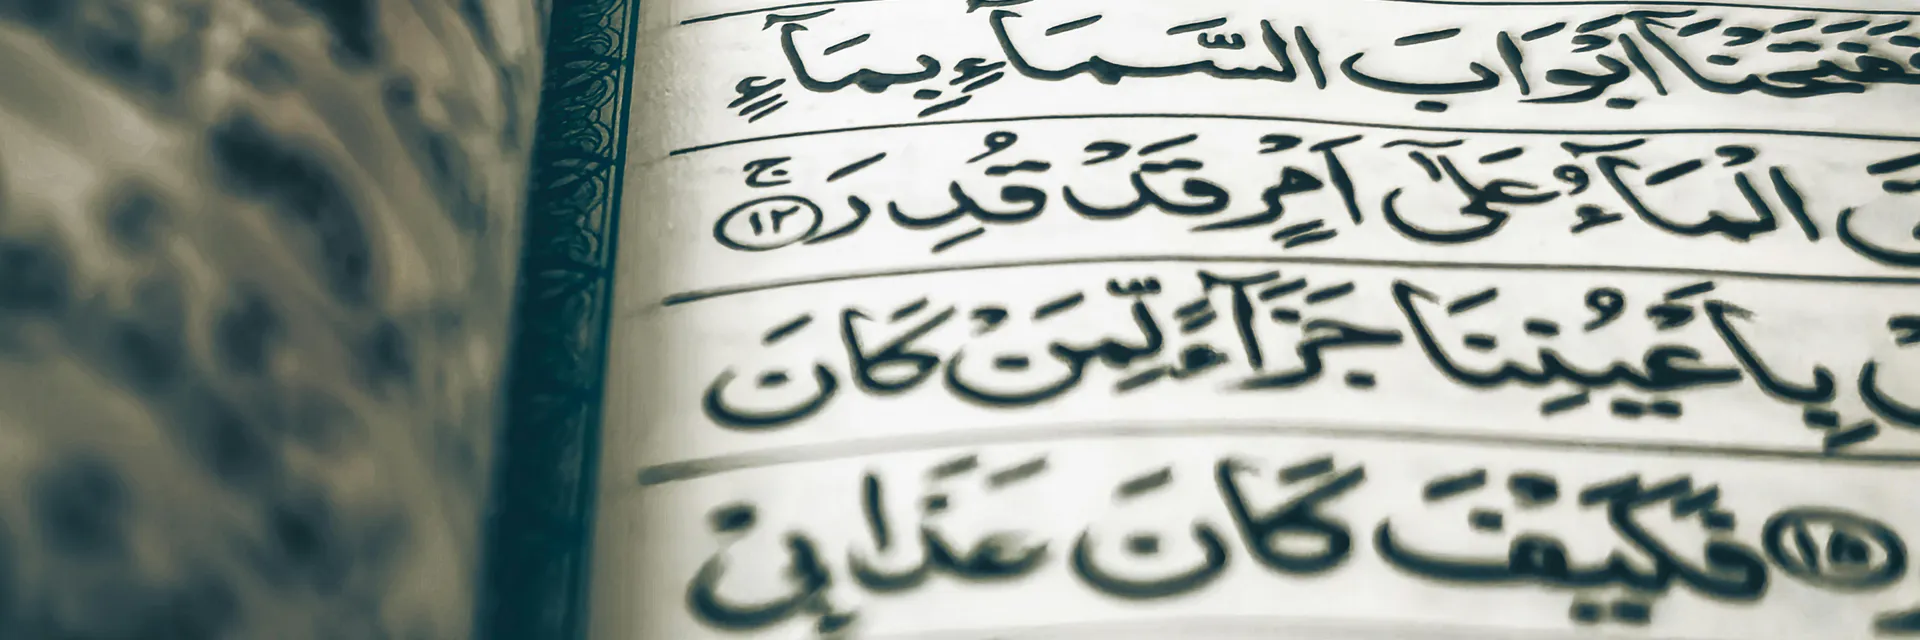 فَفَتَحْنَآ أَبْوَابَ السَّمَآءِ بِمَآءٍ
الْمَآءُ عَلٰٓى أَمْرٍ قَدْ قُدِرَ ۚ ﴿١٢﴾
بِأَعْيُنِنَا جَزَآءً لِّمَنْ كَانَ
﴿١٥﴾ فَكَيْفَ كَانَ عَذَابِي